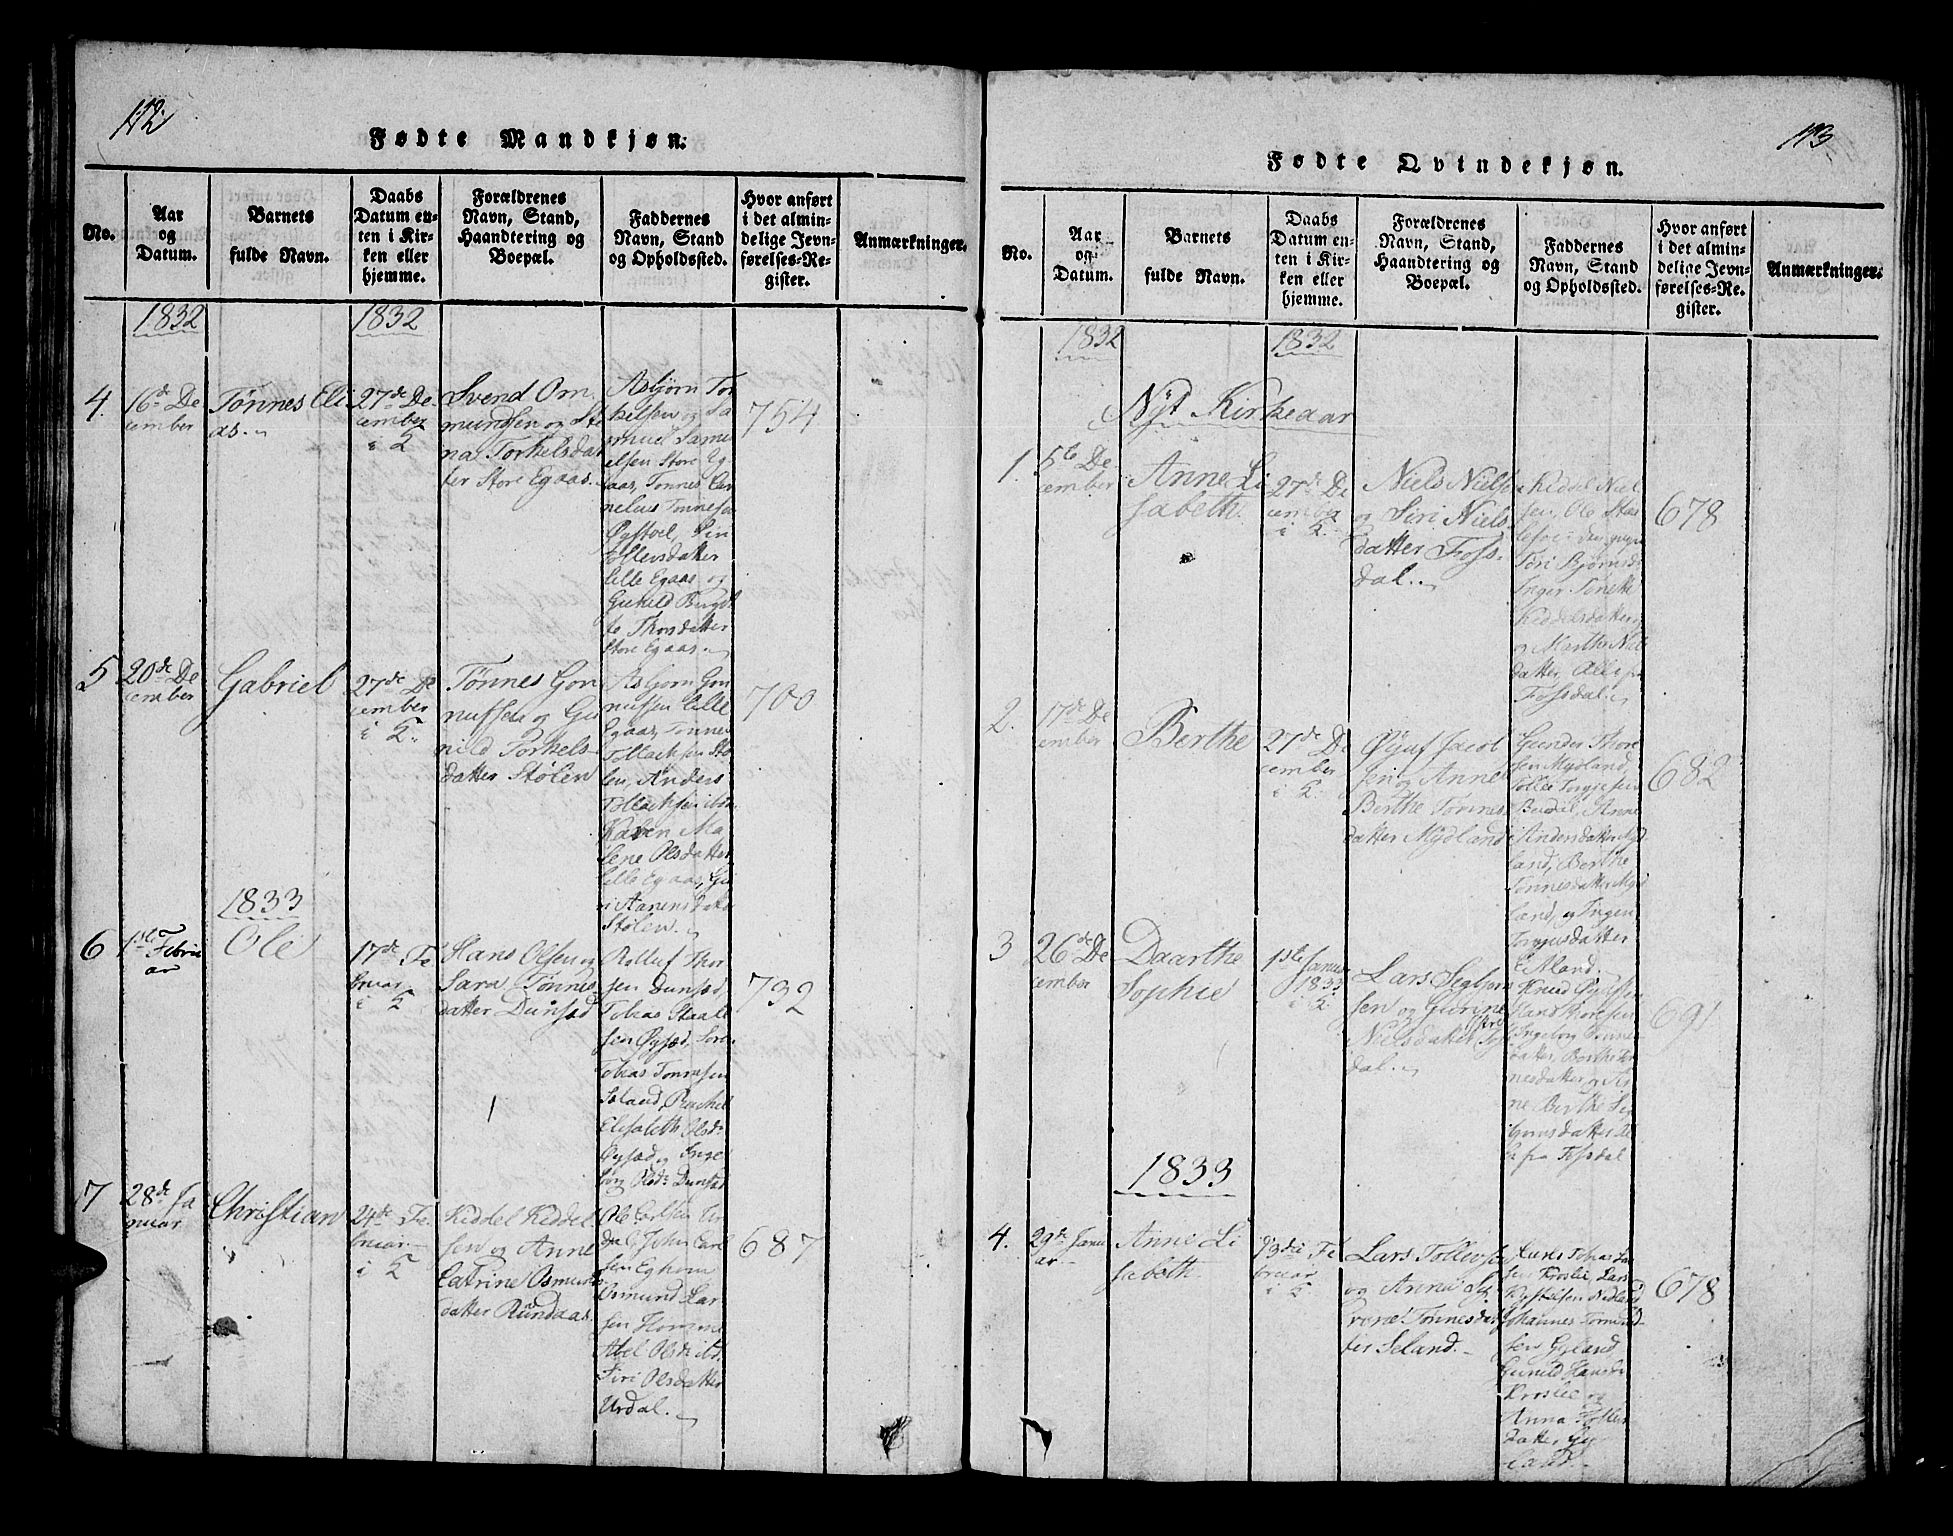 112
Fødte Mandkjøn.
No.
Aar
og
Datum.
Barnets
fulde Navn.
Daabs
Datum en-
ten i Kir-
ken eller
hjemme.
Forældrenes
Navn, Stand,
Haandtering og
Boepæl.
Faddernes
Navn, Stand
og Opholdssted.
Hvor anført
i det almin-
delige Jevn-
førelses-Re-
gister.
Anmærkninger.
1832
1832
4.
16de De
cember
Tønnes Eli
as.
27de De
cember
i K
Svend Om
mundsen og Ste
na Torkelsdat
ter Store Egaas.
Asbjørn Tor
kelsen og Sa
muel Samu
elsen Store Eg
aas, Tonnes Cor
nelius Tonnesen
Øystoel,
Tollevsdatter
Lille Egaas og
Gunild Birgit
te Thorsdatter
Store Egaas.
754
5
20de De
cember
Gabriel
27de De
cember
i K.
Tønnes Gon
nufsen og Gu
nild Torkels-
datter Stølen
Asbjørn Gon
nufsen Lille
Egaas, Tonnes
Tollachsen Stø
len, Anders
Tollachsen ibd.
Karen Ma
lene Olsdatter
Lille Egaas, Gu
ri Aanensdatt
Stølen.
700
1833
6
1ste Febru
ar
Ole
17de Fe
bruar
i K
Hans Olsen og
Sara Tønnes
datter Dunsæd
Rolluf Thor
sen Dunsæd,
Tobias Staale
sen Øysæd, Soren
Tobias Tonnesen
Soland, Rachel
Elisabeth Olsd:
Øysæd og Inge
borg Olsd: Dunsæd
732
7
28de Ja
nuar
Christian
24de Fe
bruar
i K
Kiddel Kiddel
sen og Anne
Catrine Osmunds
datter Rundaas.
Ole Carlsen Ur
dal, John Carl
sen Eghom
Osmund Lar
sen Homme
Abel Olsd: ibd.
Siri Olsdatter
Urdal.
687
113
Fødte Qvindekjøn.
No.
Aar
og
Datum.
Barnets
fulde Navn.
Daabs
Datum en-
ten i Kir-
ken eller
hjemme.
Forældrenes
Navn, Stand,
Haandtering og
Boepæl.
Faddernes
Navn, Stand
og Opholdssted.
Hvor anført
i det almin-
delige Jevn-
førelses-Re-
gister.
Anmærkninger.
1832
1832
Nyt Kirkeaar
1.
5te De
cember
Anne Li
sabeth.
27de De
cember
i K.
Niels Nielsen
og Siri Niels
datter Foss
dal.
Kiddel Niel
sen, Ole
Siri Bjørnsd:
Inger Tonette
Kiddelsdatter
og Marthe Niels
datter, Alle fra
Fossdal.
678
2.
17de De
cember
Berthe
27de De
cember
i K.
Øjuf Jacob
sen og Anne
Berthe Tønnes
datter Mydland
Gunder Thore
sen Mydland
Tollef Torgiersen
Anne
Andersdatter Myd
land, Berthe
Tonnesdatter Myd
land, og Ingen
datter
Eikland.
682
3
26de De
cember
Daarthe
Sophie
1ste Januar
1833
i K.
Lars Segbjorn
sen og Gurine
Nielsdatter Foss
dal.
Knud Øjufsen
Hans Thoresen
Ingeborg Tonnes
datter, Berthe Ton
nesdatter og
ne Berthe
datter al
le fra Fossdal
691
1833
4.
29de Janu
ar
Anne Li
sabeth
Fe
bruar
i K
Lars Tollevsen
og Anna
Tonnesdat
ter Seland.
Tobias La
sen Kroslie, Lars
Nedland
Johannes Tormund
sen Gyland
Gunild Hansd:
Kroslie og
Anna
datter, Gy
land.
678